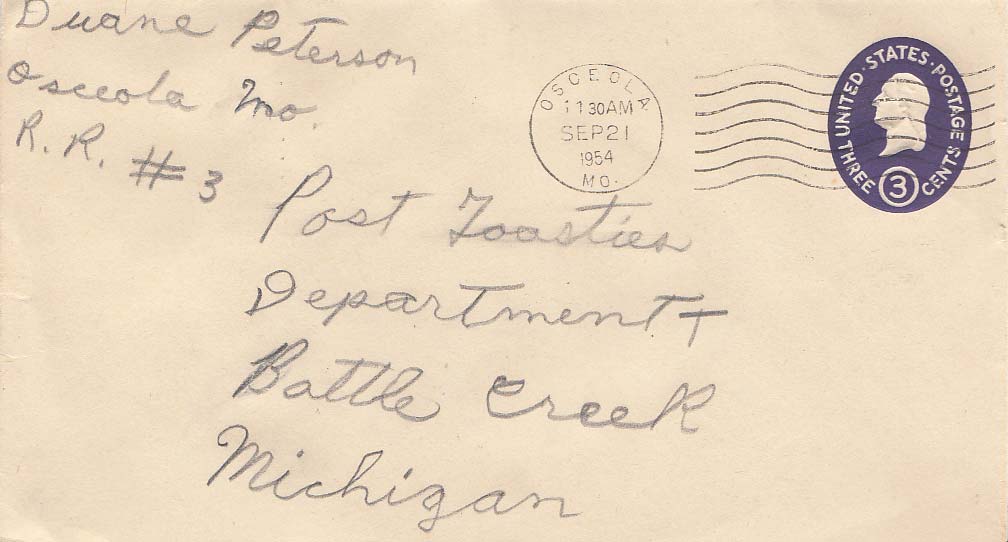 Duane Peterson
Osceola Mo.
R.R. # 3
OSCEOLA
11 30 AM
SEP 21
1954
MO.
UNITED · STATES · POSTAGE
THREE 3 CENTS
Post Toasties
Department
Battle Creek
Michigan